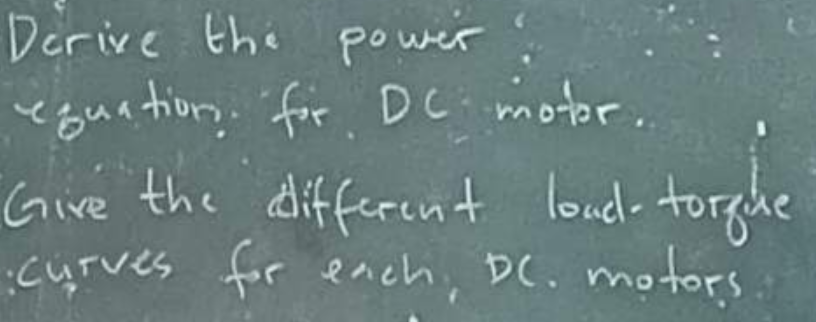 Derive the power
equation for DC motor.
Give the different load-torque
curves for each DC. motors